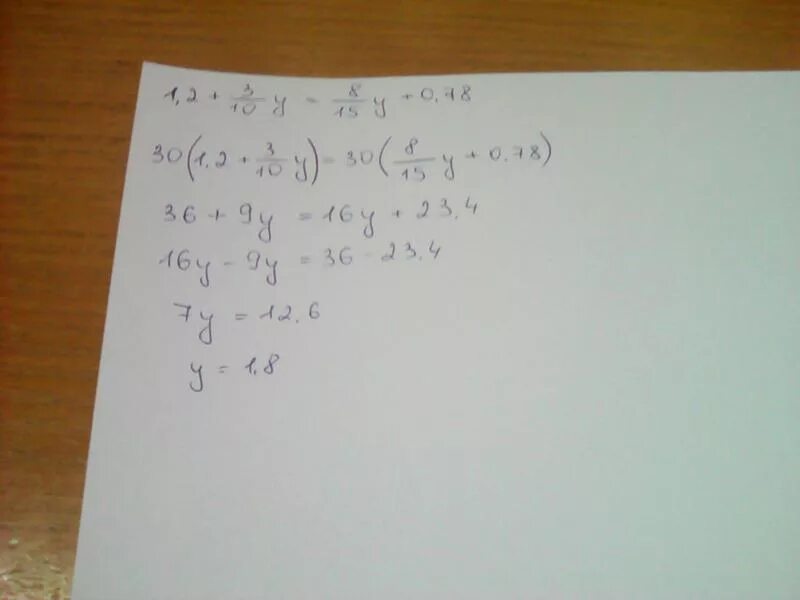 1,2 + 3/10 y = 8/15 y + 0,78
30(1,2 + 3/10 y) = 30(8/15 y + 0,78)
36 + 9y = 16y + 23,4
16y - 9y = 36 - 23,4
7y = 12,6
y = 1,8